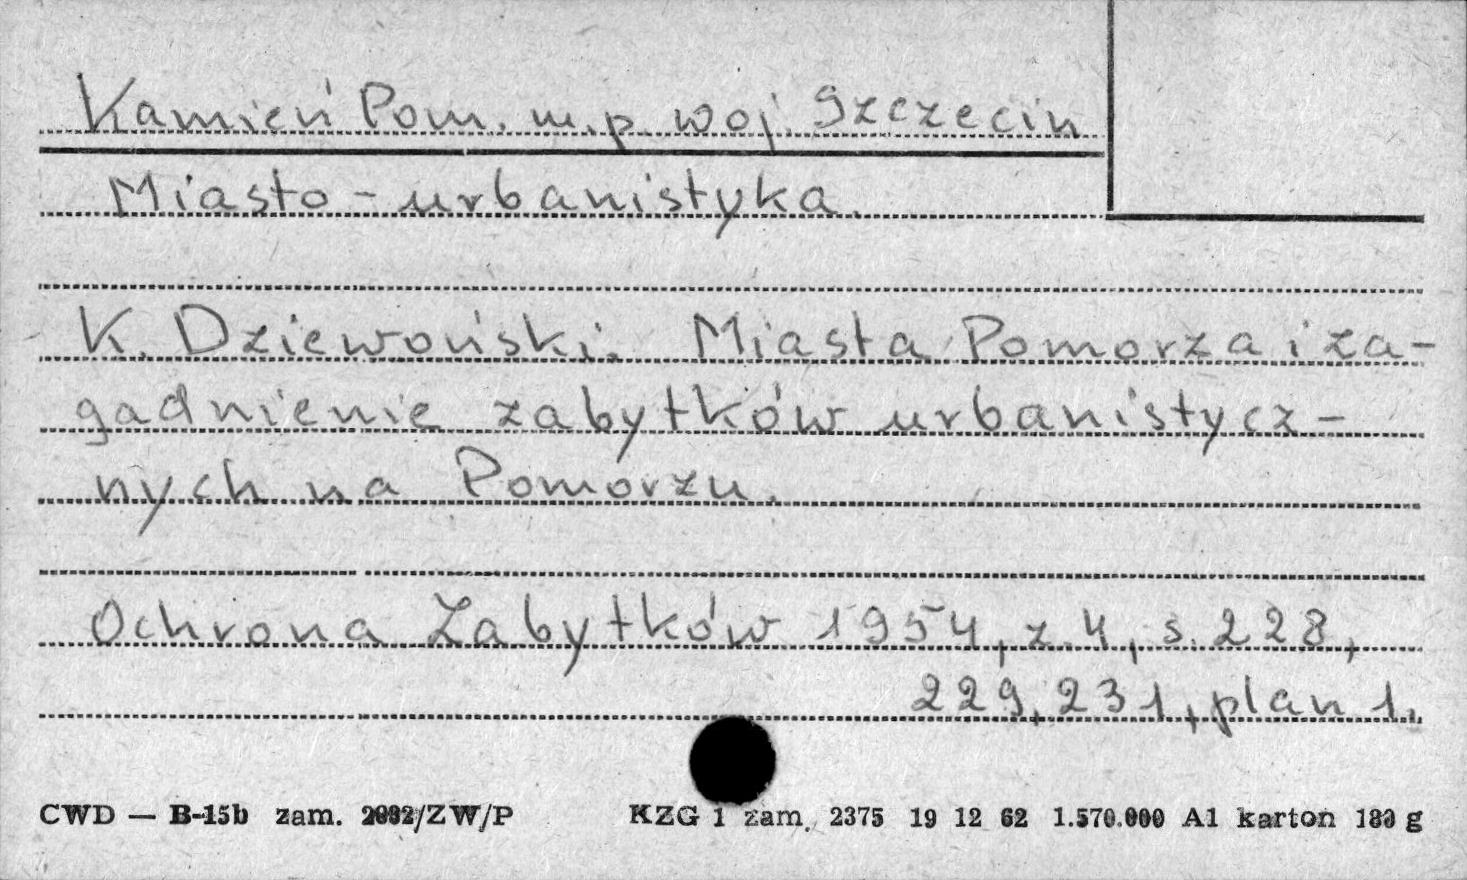 Kamień Pom. m.p. woj. Szczecin
Miasto - urbanistyka.
K. Dziewoński. Miasta Pomorza i za-
gadnienie zabytków urbanistycz-
nych na Pomorzu.
Ochrona Zabytków 1954, z. 4, s. 228,
229, 231, plan 1.
CWD — B-15b zam. /ZW/P KZG 1 zam. 2375 19 12 62 1.570.000 A1 karton 180 g